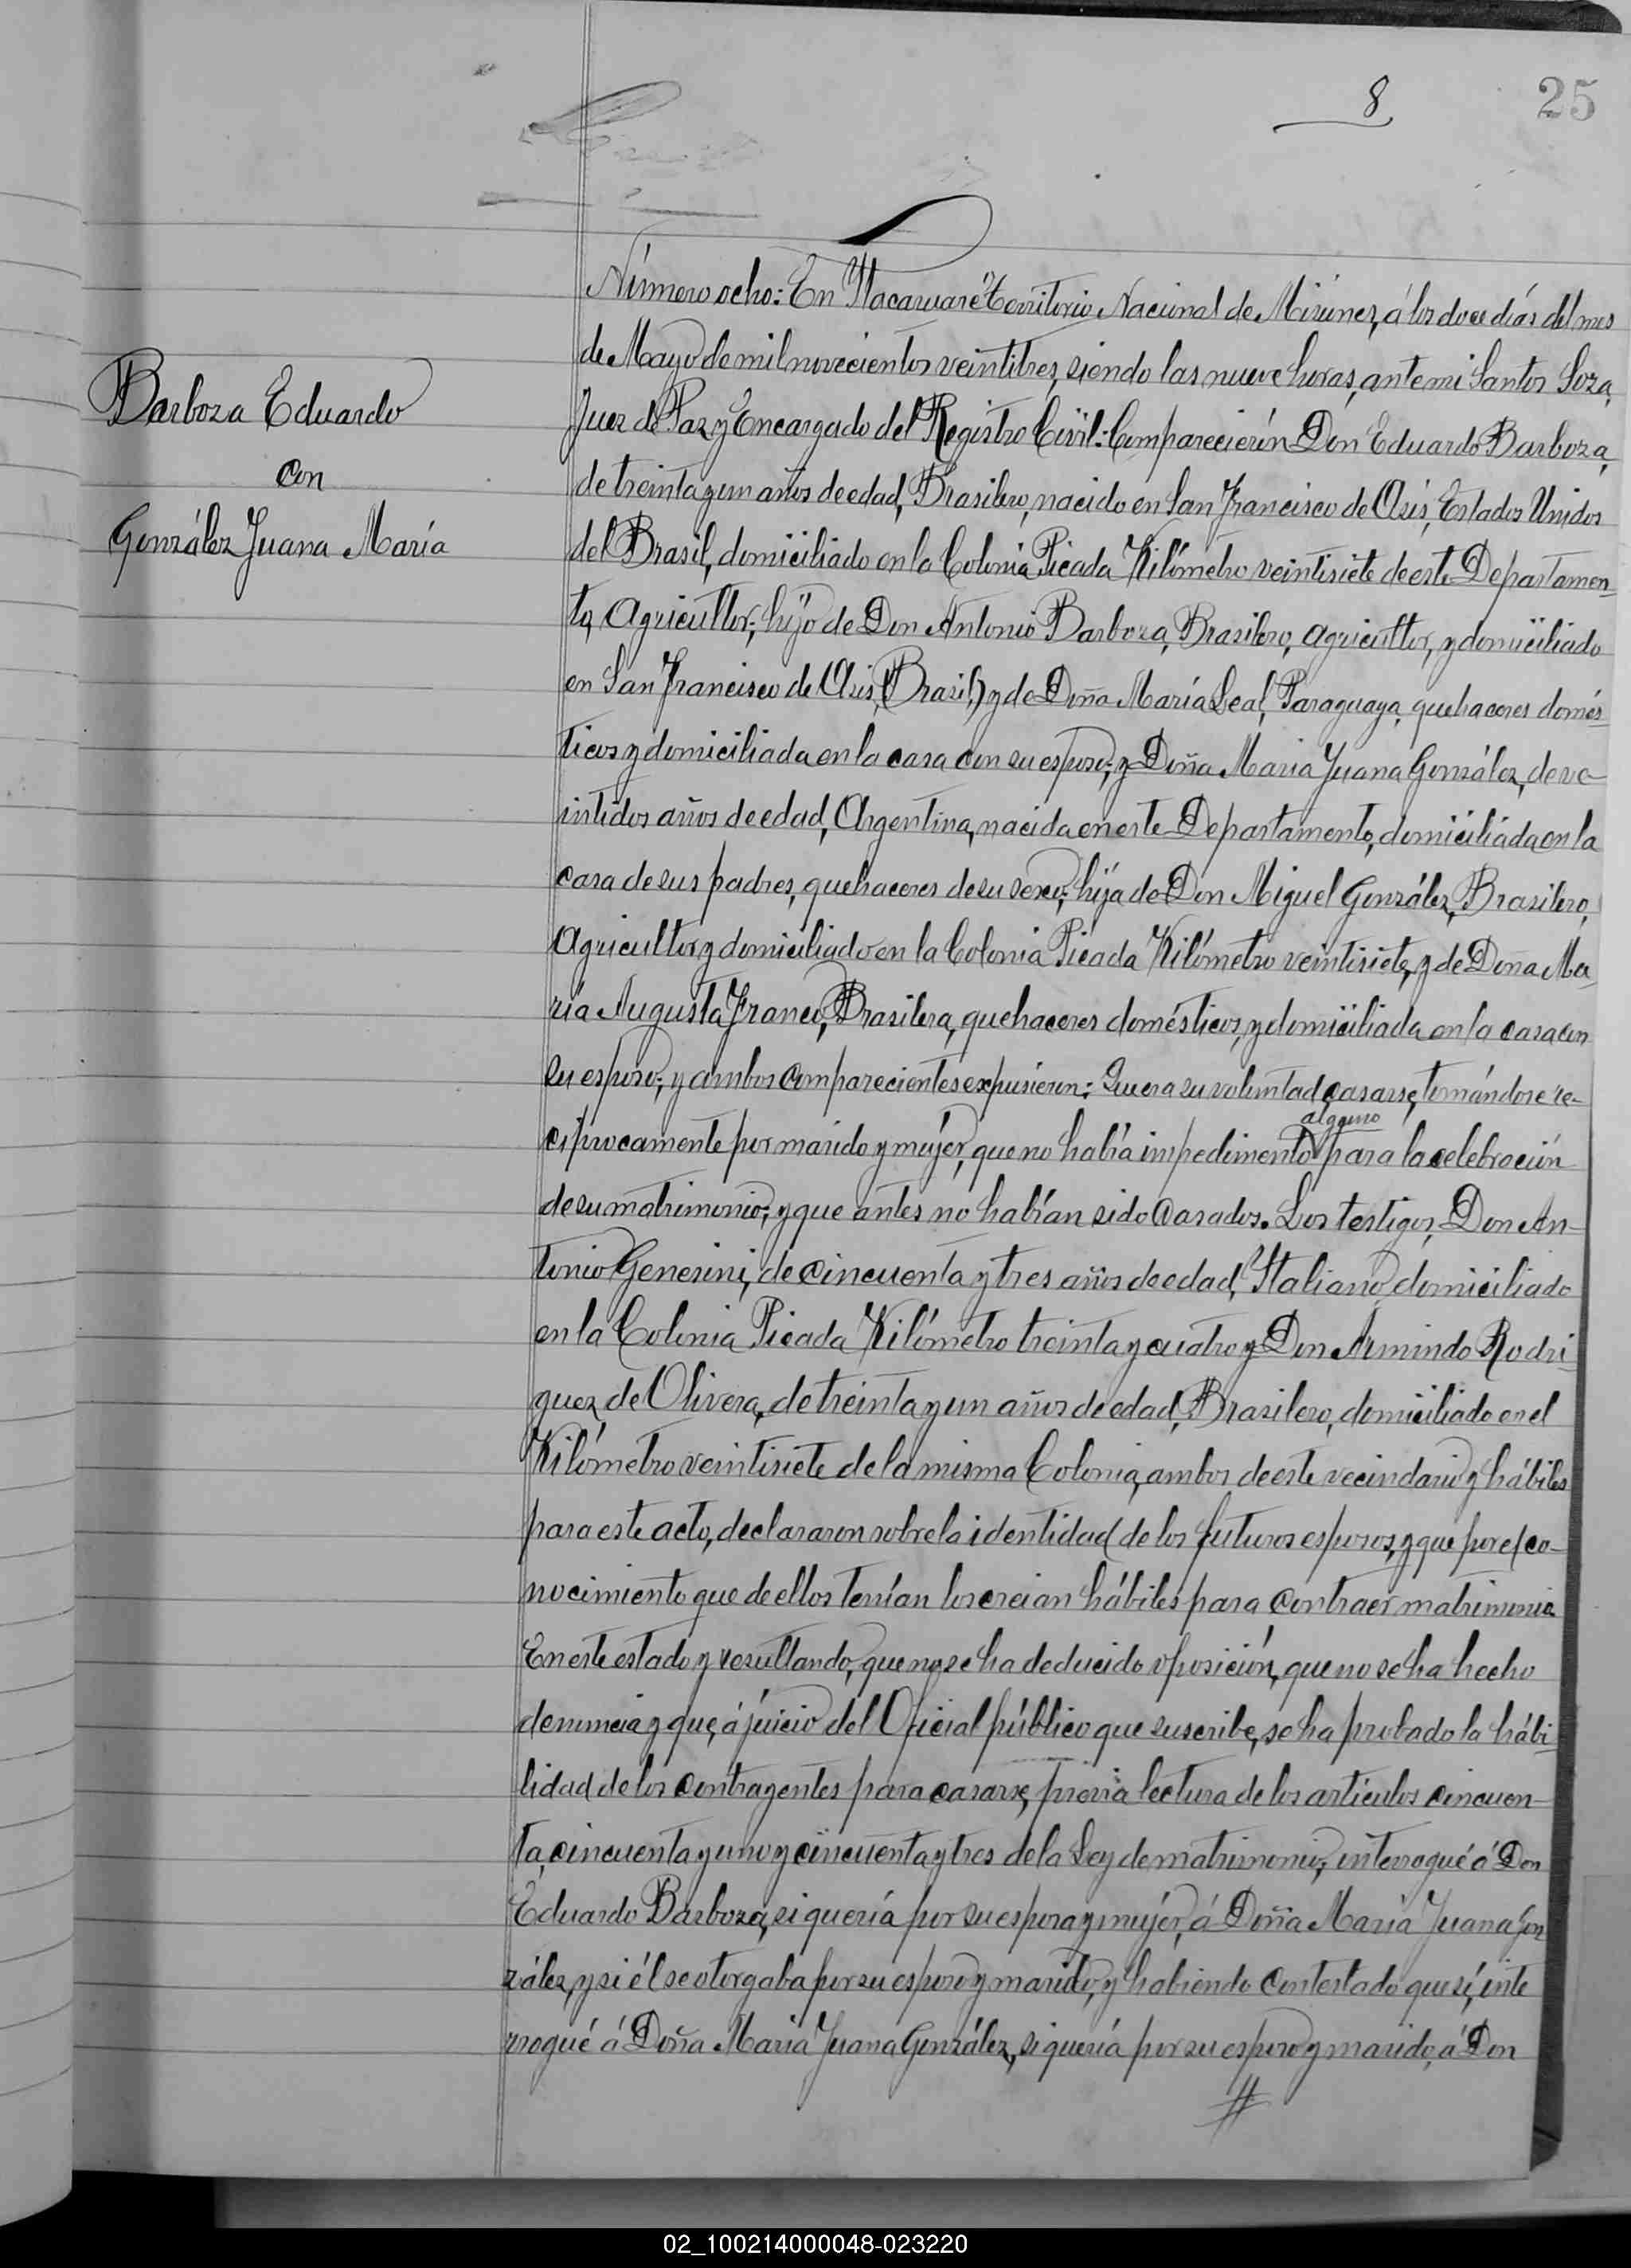 8
25
Barboza Eduardo
con
González Juana María
Número ocho: En "Itacaruaré" Territorio Nacional de Misiones, á los doce días del mes
de Mayo de mil novecientos veintitres, siendo las nueve horas, ante mi Santos Soza,
Juez de Paz y Encargado del Registro Civil: Comparecierón Don Eduardo Barboza,
de treinta y un años de edad, Brasilero, nacido en San Francisco de Asis, Estados Unidos
del Brasil, domiciliado en la Colonia Picada Kilómetro veintisiete de este Departamen-
to, Agricultor; hijo de Don Antonio Barboza, Brasilero, agricultor, y domiciliado
en San Francisco de Asis, (Brasil) y de Doña María Leal, Paraguaya, quehaceres domés-
ticos y domiciliada en la casa con su esposo; y Doña Maria Juana González, de ve-
intidos años de edad, Argentina, nacida en este Departamento, domiciliada en la
casa de sus padres, quehaceres de su sexo; hija de Don Miguel González, Brasilero,
Agricultor y domiciliado en la Colonia Picada Kilómetro veintisiete, y de Doña Ma-
ría Augusta Franco, Brasilera, quehaceres domésticos, y domiciliada en la casa con
su esposo; y ambos comparecientes expusieron: Que era su voluntad casarse, tomándose re-
alguno
ciprocamente por marido y mujer, que no había impedimento para la celebración
de su matrimonio; y que antes no habían sido casados. Los testigos, Don An-
tonio Genesini, de cincuenta y tres años de edad, Italiano, domiciliado
en la Colonia Picada Kilómetro treinta y cuatro y Don Armindo Rodri-
guez de Olivera, de treinta y un años de edad, Brasilero, domiciliado en el
Kilómetro veintisiete de la misma Colonia, ambos de este vecindario y hábiles
para este acto, declararon sobre la identidad de los futuros esposos, y que por el co-
nocimiento que de ellos tenían los creian hábiles para contraer matrimonio.
En este estado y resultando, que no se ha deducido oposición, que no se ha hecho
denuncia y que, á juicio del Oficial público que suscribe, se ha probado la hábi-
lidad de los contrayentes para casarse, previa lectura de los artículos cincuen-
ta, cincuenta y uno y cincuenta y tres de la Ley de matrimonio; interrogué á Don
Eduardo Barboza, si quería por su esposa y mujer, á Doña Maria Juana Gon
zález, y si él se otorgaba por su esposo y marido, y habiendo contestado que sí, inte
rrogué á Doña Maria Juana González, si quería por su esposo y marido, á Don
#
02_100214000048-023220